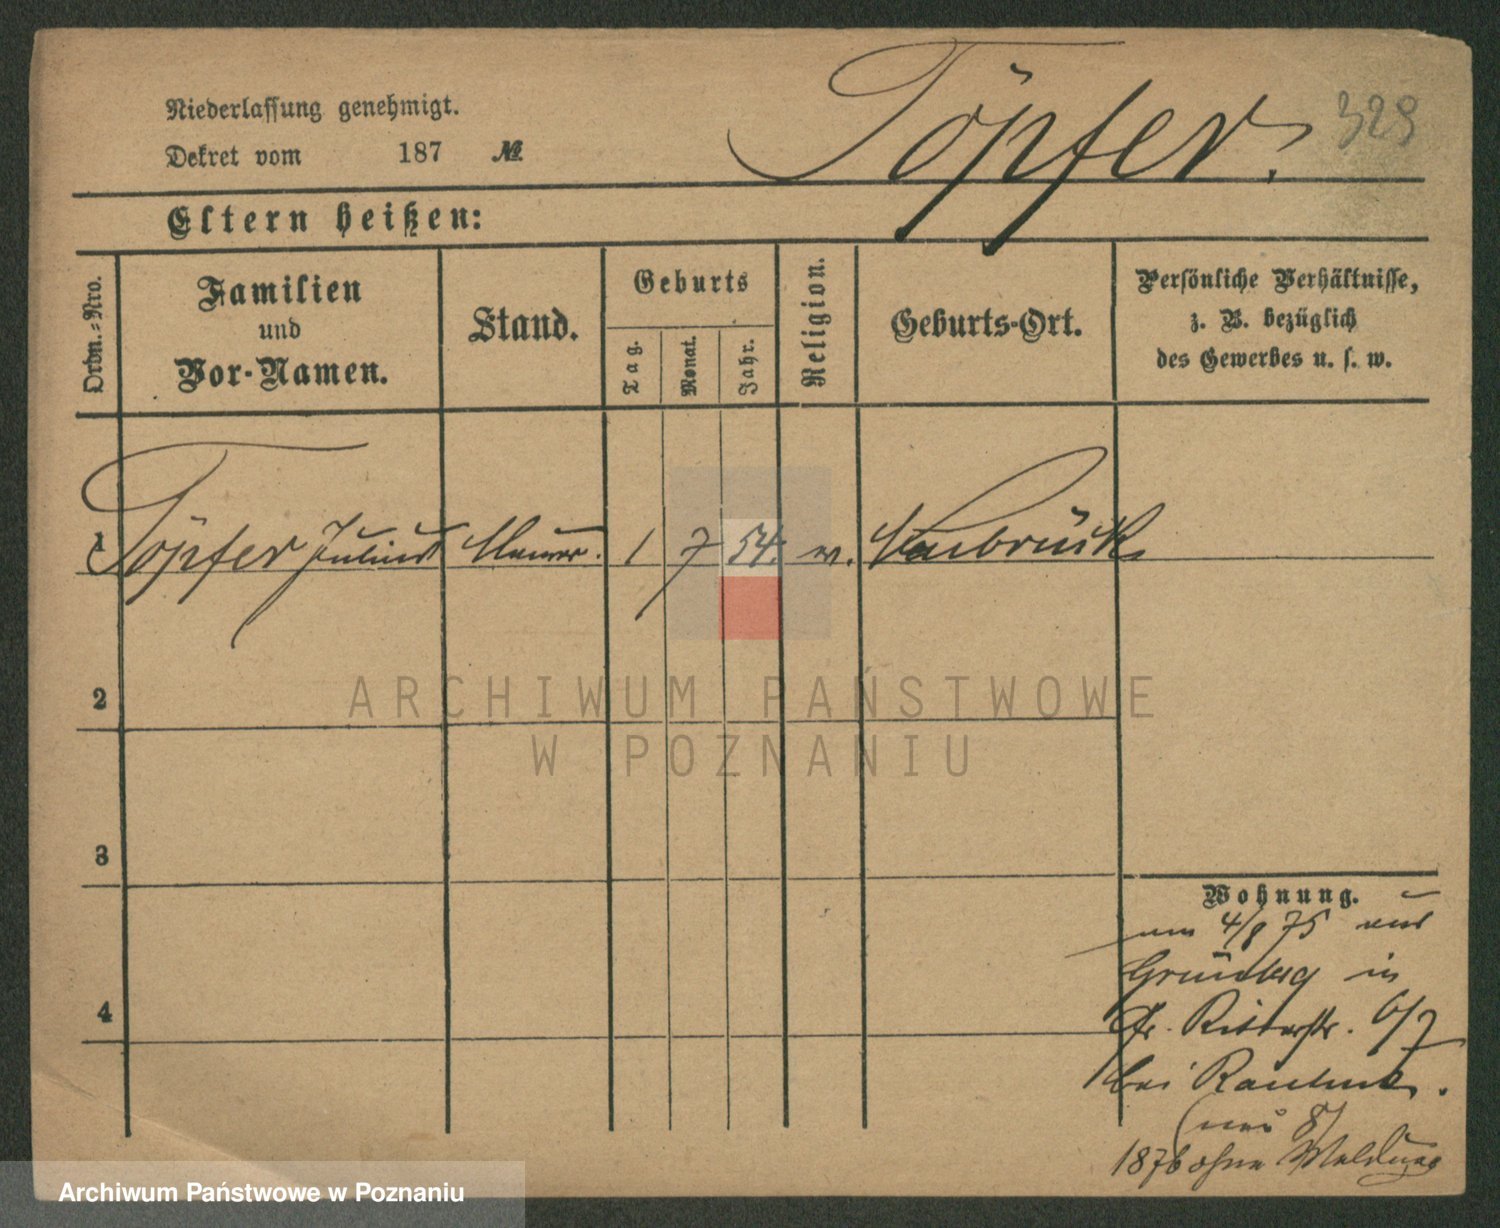 Niederlassung genehmigt.
Dekret vom 187 №
Töpfer.
329
Eltern heißen:
Ordn.-Nro.
Familien
und
Vor-Namen.
Stand.
Geburts
Tag.
Monat.
Jahr.
Religion.
Geburts-Ort.
Persönliche Verhältnisse,
z. B. bezüglich
des Gewerbes u. s. w.
1 Töpfer Julius Maurer. 1 7 54. ev. Neubrück
2
3
4
Wohnung.
am 4/8 75 aus
Grünberg in
Gr. Ritterstr. 6/7
bei
(neu 8)
1876 ohne Meldung
ARCHIWUM PAŃSTWOWE
W POZNANIU
Archiwum Państwowe w Poznaniu